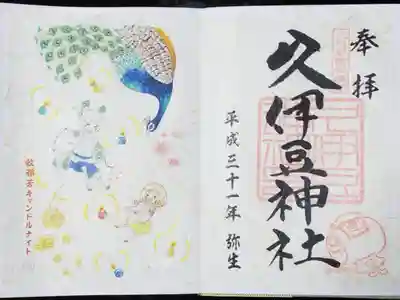 奉拝
久伊豆神社
平成三十一年 弥生
被部若キャンドルナイト